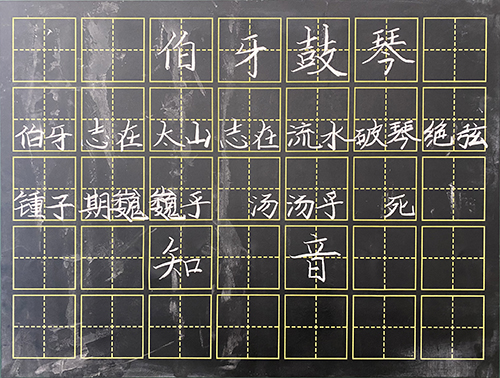 伯牙鼓琴
伯牙志在太山志在流水破琴绝弦
锺子期魏魏乎 汤汤乎 死
知音